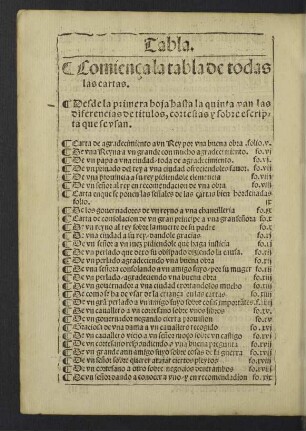 Tabla.
¶ Comiença la tabla de todas
las cartas.
¶ Desde la primera hoja hasta la quinta van las
diferencias de titulos, cortesias y sobre escrip-
ta que se vsan.
¶ Carta de agradecimiento a vn Rey por vna buena obra .folio.v.
¶ De vna Reyna a vn grande con mucho agradecimiento. fo.vi
¶ De vn papa a vna ciudad toda de agradecimento. fo.vi
¶ De vn priuado del rey a vna ciudad ofreciendoles fauor. fo.vii
¶ De vna prouincia a su rey pidiendole clemencia fo.vii
¶ De vn señor al rey en recomendacion de vna obra fo.viii
¶ Carta en que se ponen las señales de las cartas bien hordenadas
folio. ix
¶ De los gouernadores de vn reyno a vna chancilleria
¶ Carta de consolacion de vn gran principe a vna gran señora
¶ De vn reyno al rey sobre la muerte de su padre
¶ De vna ciudad a su rey dandole gracias
¶ De vn señor a vn juez pidiendole que haga justicia
¶ De vn perlado que dexo su obispado diziendo la causa.
¶ De vn perlado agradeciendo vna buena obra
¶ De vna señora consolando a vn amigo suyo por su muger
¶ De vn perlado agradeciendo vna buena obra
¶ De vn gouernador a vna ciudad
¶ De como se ha de vsar de la en las cartas.
¶ De vn grã perlado a vn amigo suyo sobre cosas
¶ De vn cauallero a vn cortesano sobre vnos libros
¶ De vn gouernador negando cierta prouision
¶ Graciosa de vna dama a vn cauallero recogido
¶ De vn cauallero viejo a vn señor moço sobre vn castigo
¶ De vn cortesano respondiendo a vna buena pregunta
¶ De vn grande a vn amigo suyo sobre cosas de la guerra
¶ De vn señor sobre querer atajar ciertos pleytos
¶ De vn cortesano a otro sobre negocios de entrambos
¶ De vn señor dando a conocer a vno y en recomendacion